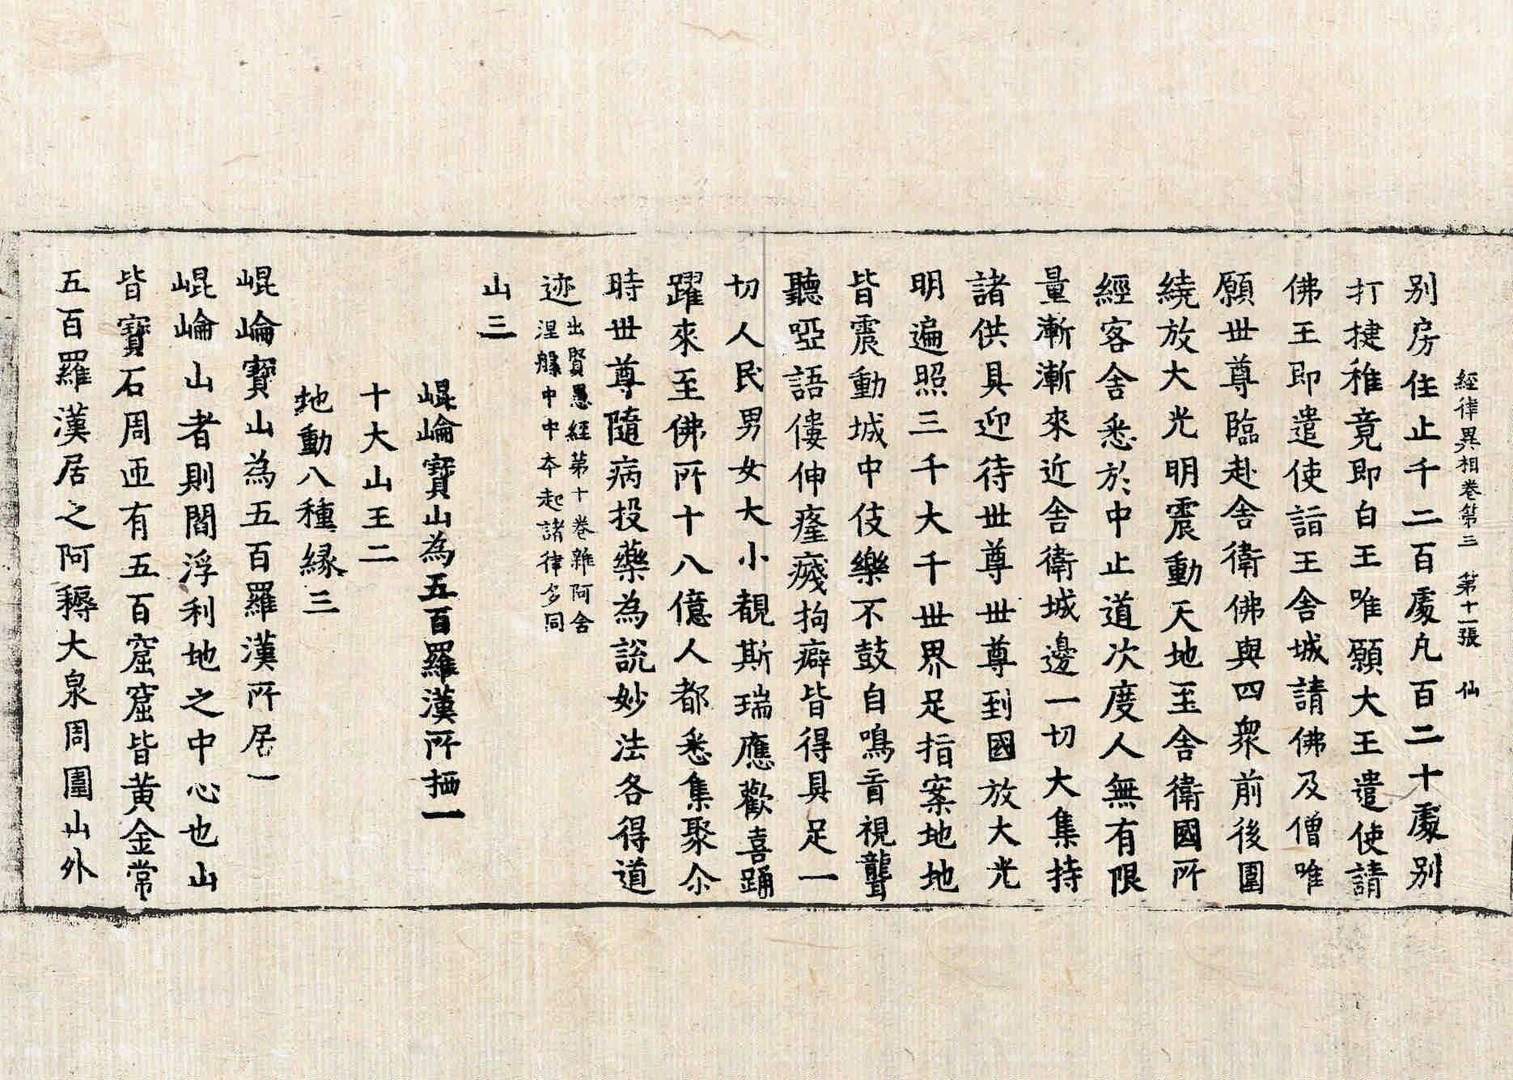 經律異相卷第三 第十一張 仙
別房住止千二百處凡百二十處別
打揵稚竟即白王唯願大王遣使請
佛王即遣使詣王舍城請佛及僧唯
願世尊臨赴舍衛佛與四衆前後圍
繞放大光明震動天地至舍衛國所
經客舍悉於中止道次度人無有限
量漸漸來近舍衛城邊一切大集持
諸供具迎待世尊世尊到國放大光
明遍照三千大千世界足指案地地
皆震動城中伎樂不鼓自鳴盲視聾
聽啞語僂伸癃殘拘癖皆得具足一
切人民男女大小覩斯瑞應歡喜踊
躍來至佛所十八億人都悉集聚尒
時世尊隨病投藥為說妙法各得道
迹出賢愚經第十卷雜阿含涅槃中中夲起諸律多同
山三
崐崘寶山為五百羅漢所栖一
十大山王二
地動八種緣三
崐崘寶山為五百羅漢所居一
崐崘山者則閻浮利地之中心也山
皆寶石周匝有五百窟窟皆黄金常
五百羅漢居之阿耨大泉周圍山外